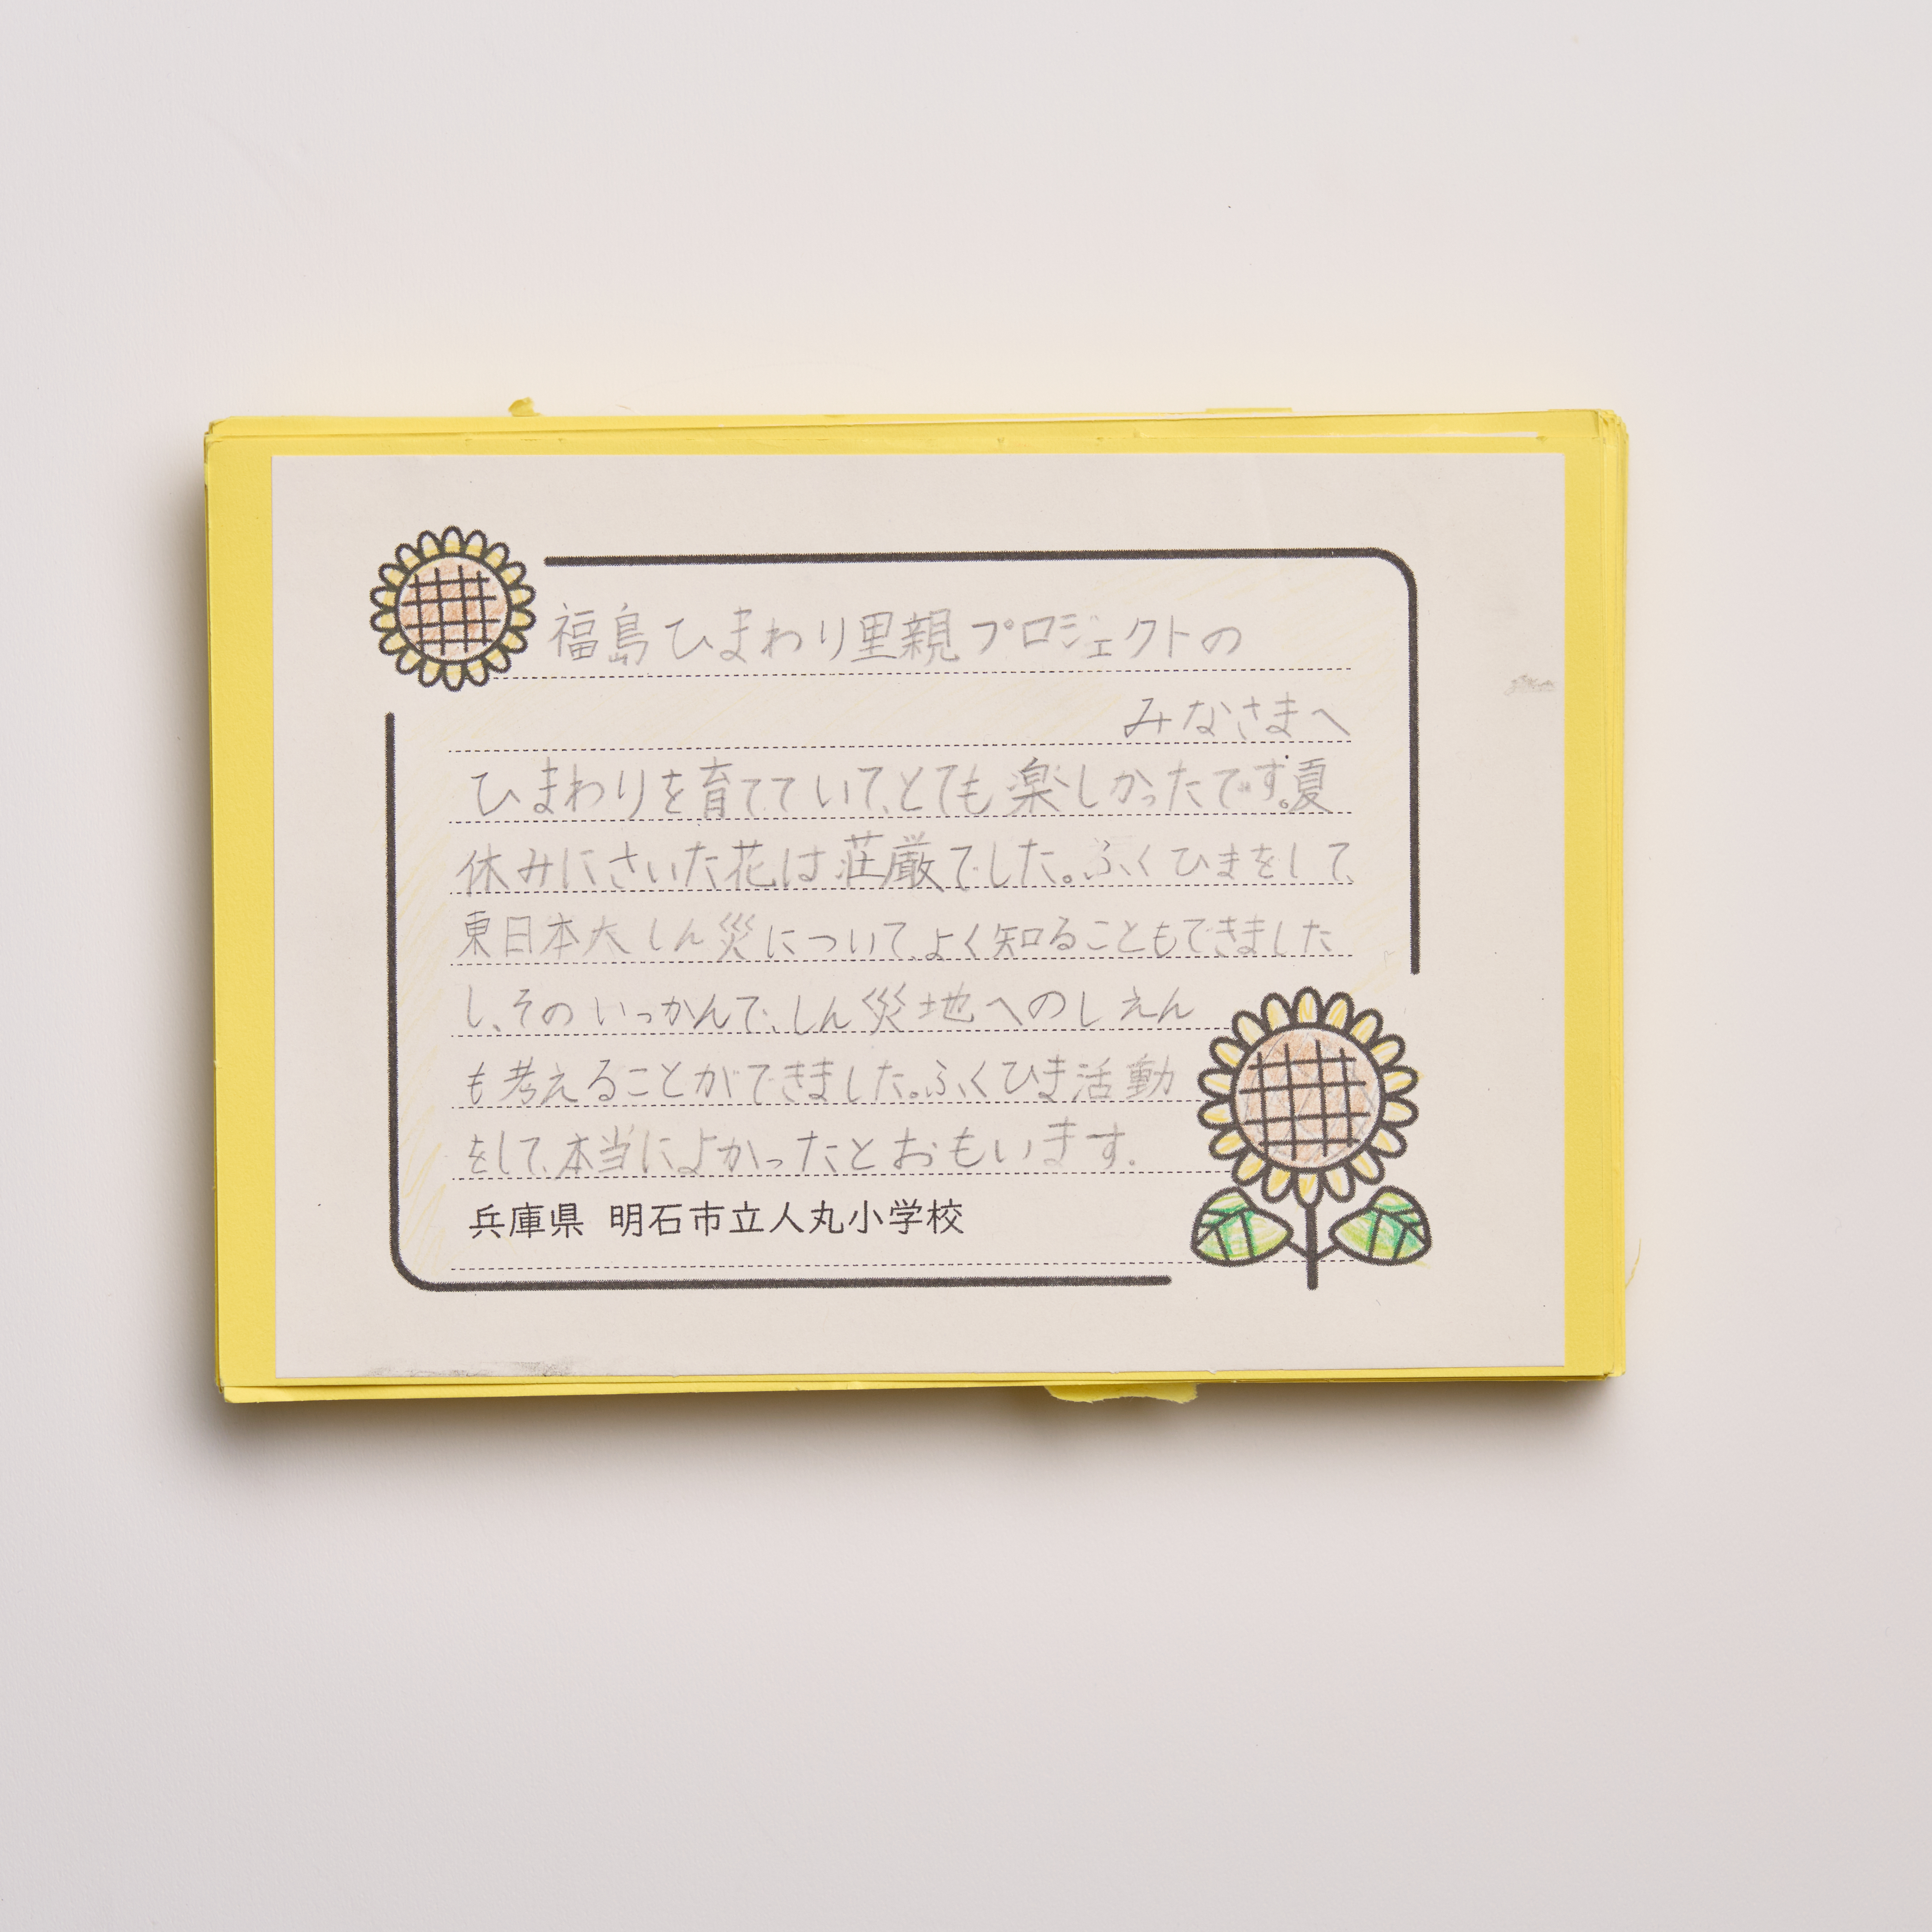 福島ひまわり里親プロジェクトの
みなさまへ
ひまわりを育てていて、とても楽しかったです。夏
休みにさいた花は荘厳でした。ふくひまをして、
東日本大しん災について、よく知ることもできました
し、そのいっかんで、しん災地へのしえん
も考えることができました。ふくひま活動
をして、本当によかったとおもいます。
兵庫県 明石市立人丸小学校